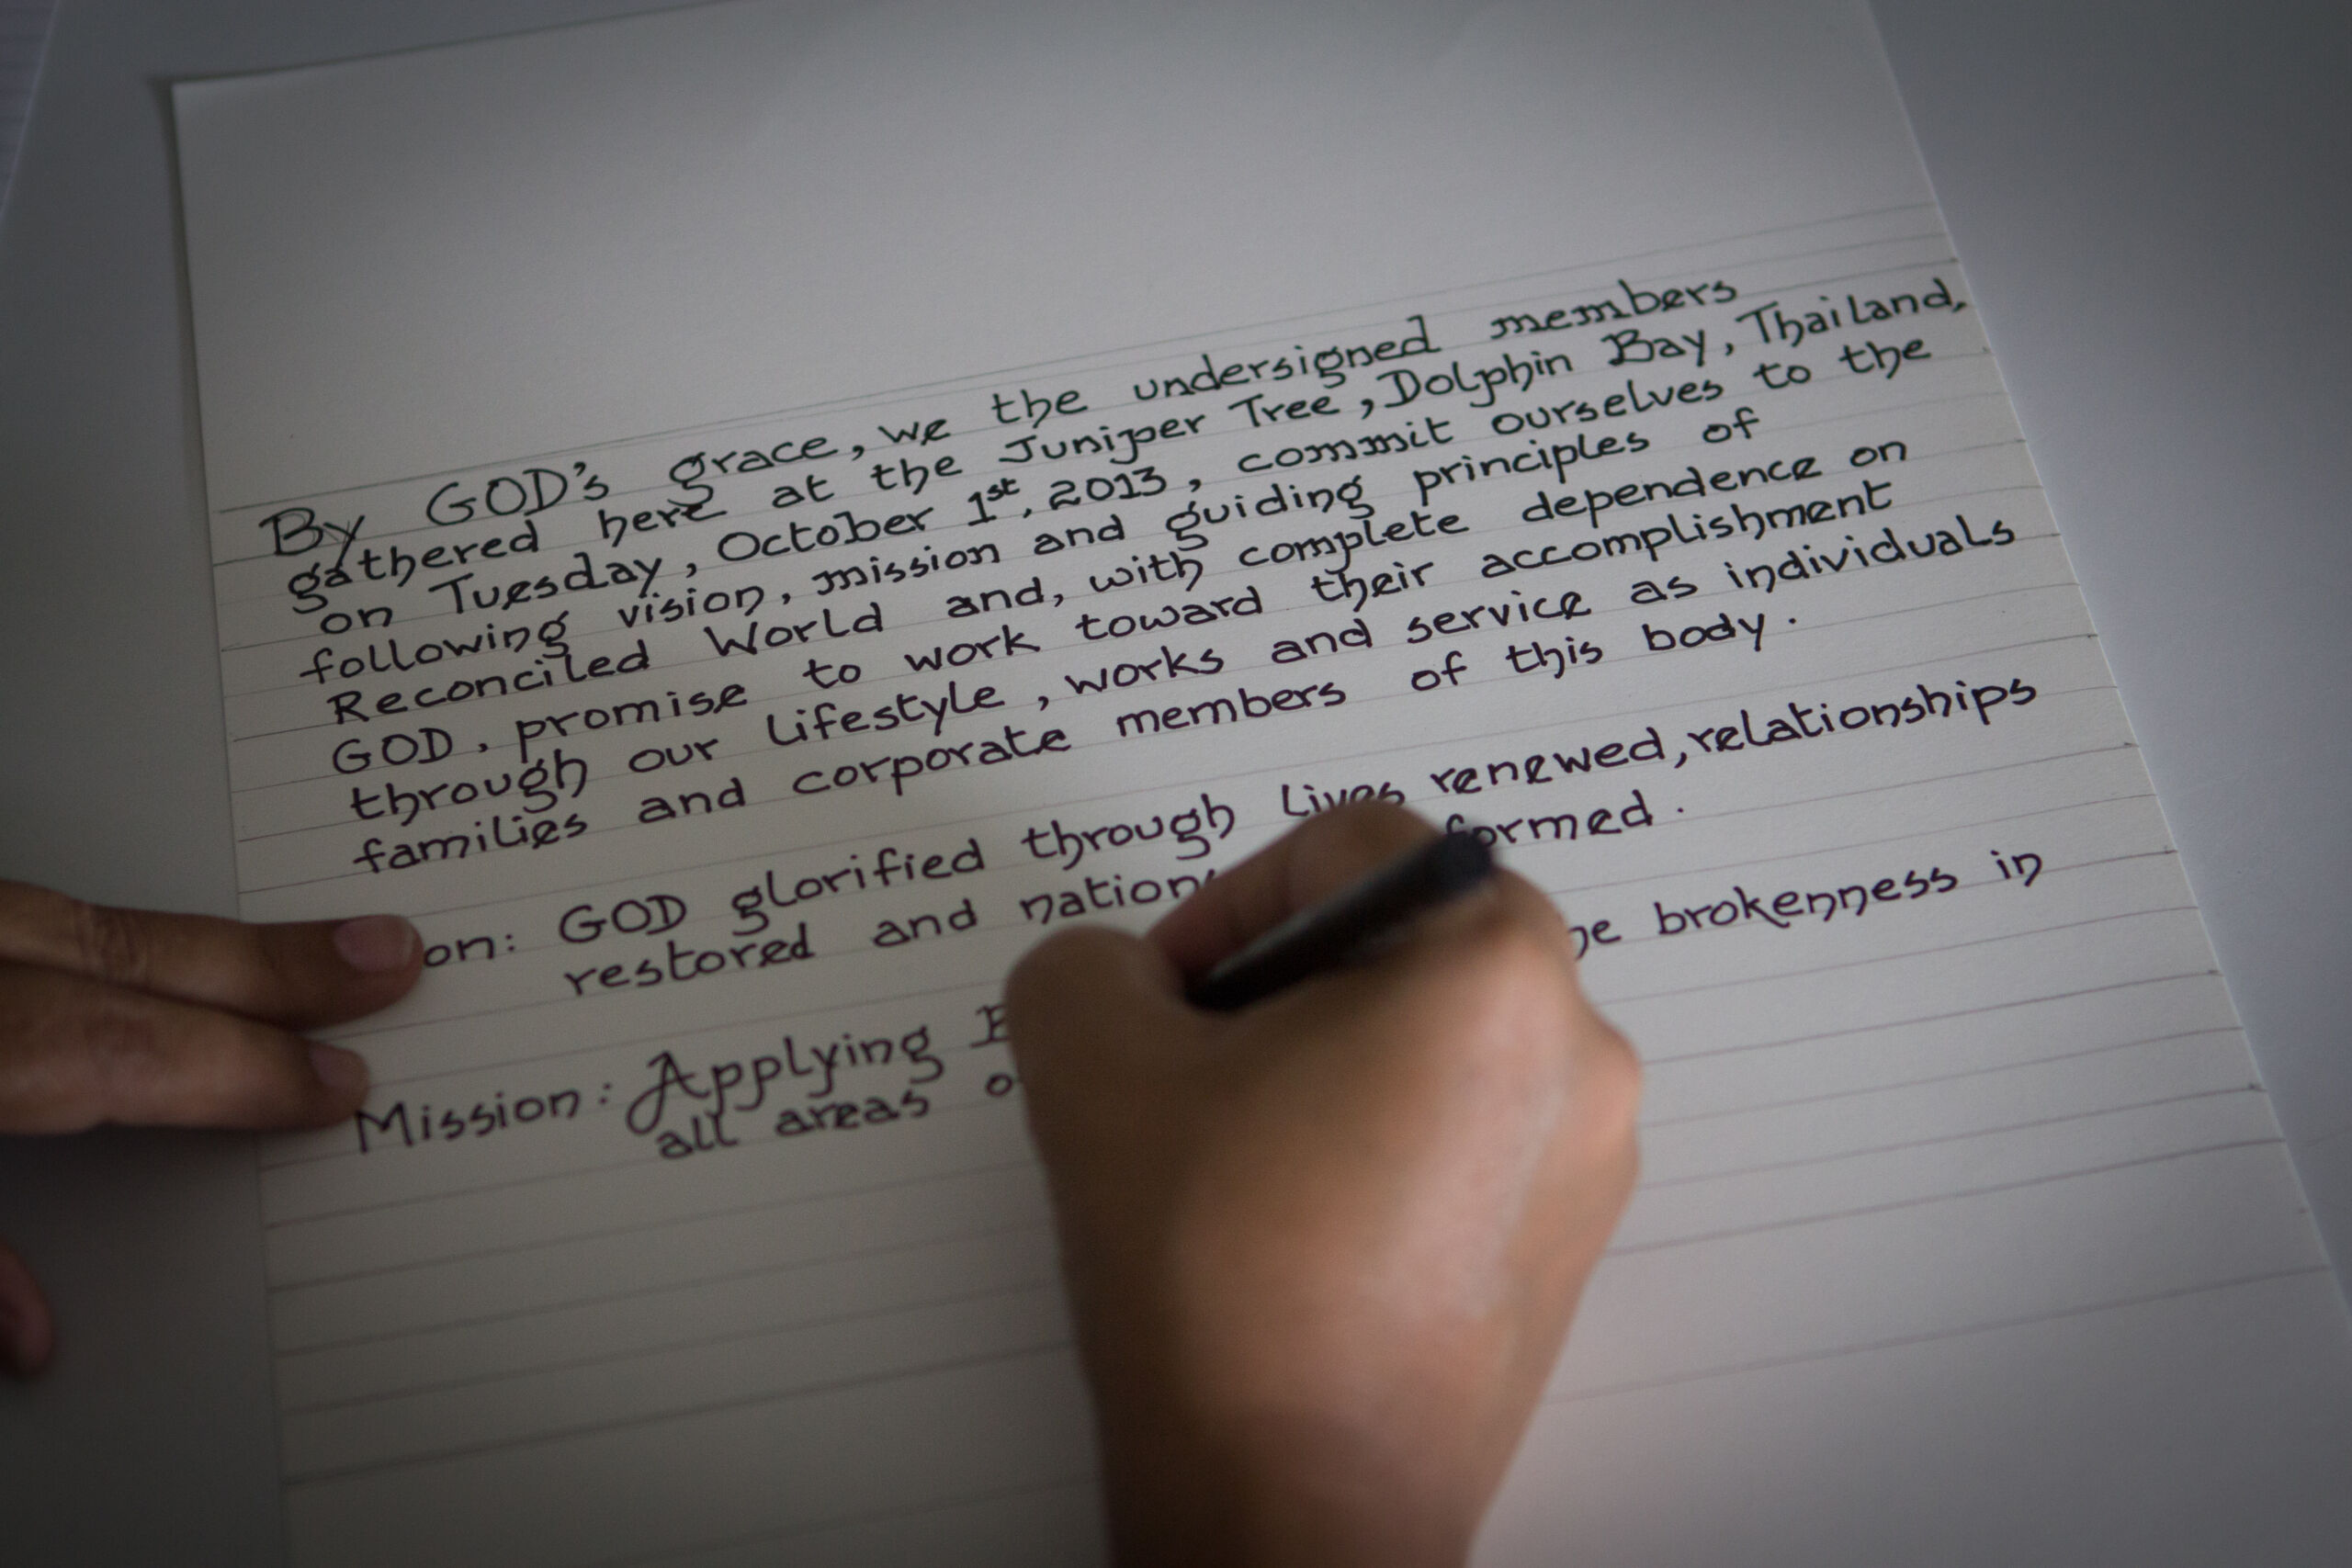 By GOD's grace, we the undersigned members
gathered here at the Juniper Tree, Dolphin Bay, Thailand,
on Tuesday, October 1st, 2013, commit ourselves to the
following vision, mission and guiding principles of
Reconciled World and, with complete dependence on
GOD, promise to work toward their accomplishment
through our lifestyle, works and service as individuals
families and corporate members of this body.
on: GOD glorified through lives renewed, relationships
restored and nation formed.
Mission: Applying brokenness in
all areas